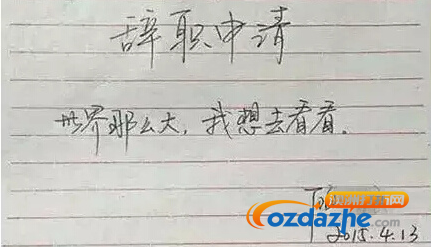 辞职申请
世界那么大，我想去看看。
ozdazhe.com
2015.4.13